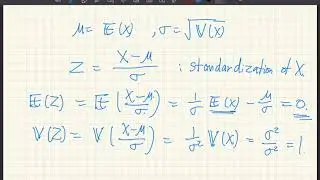 μ = 𝔼(X) , σ = √𝕍(X)
Z = (X-μ)/σ : standardization of X.
𝔼(Z) = 𝔼((X-μ)/σ) = 1/σ 𝔼(X) - μ/σ = 0.
𝕍(Z) = 𝕍((X-μ)/σ) = 1/σ² 𝕍(X) = σ²/σ² = 1